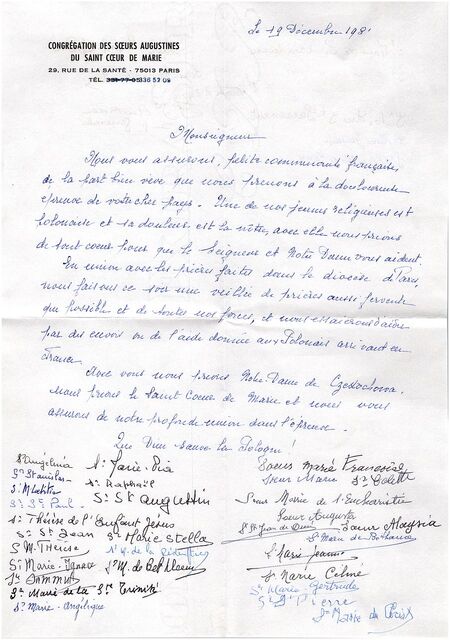 Le 19 Décembre 1981
CONGRÉGATION DES SŒURS AUGUSTINES
DU SAINT CŒUR DE MARIE
29, RUE DE LA SANTÉ - 75013 PARIS
TÉL. 331-77-05 336 52 09
Monseigneur
Nous vous assurons, petite communauté française,
de la part bien vive que nous prenons à la douloureuse
épreuve de votre cher pays. Une de nos jeunes religieuses est
polonaise et sa douleur est la nôtre, avec elle nous prions
de tout cœur pour que le Seigneur et Notre Dame vous aident.
En union avec les prières faites dans le diocèse de Paris,
nous faisons ce soir une veillée de prières aussi fervente
que possible et de toutes nos forces, et nous essaierons d'aider
par des envois ou de l'aide donnée aux Polonais arrivant en
France.
Avec vous nous prions Notre-Dame de Czestochowa.
nous prions le Saint Cœur de Marie et nous vous
assurons de notre profonde union dans l'épreuve.
Que Dieu sauve la Pologne !
Sr Angelina
Sr Marie-Pia
Soeur Marie Françoise
Sr Stanislas
Sr Raphaël
Soeur Marie
Sr Colette
Sr St Augustin
Sr St Paul
Soeur Marie de l'Eucharistie
Sr Thérèse de l'Enfant Jesus
Soeur Augusta
Sr St Jean
Sr Marie Stella
Sr St Jean de
Soeur
Sr M. Thérèse
Sr M. de la Rédemption
Sr Marie de Béthanie
Sr Marie-Ignace
Sr M. de Bethléem
Sr Marie Jeanne
Sr Marie Céline
Sr Marie de la Ste Trinité
Sr Marie-Gertrude
Sr Marie-Angélique
Sr St Pierre
Sr Marie du Christ